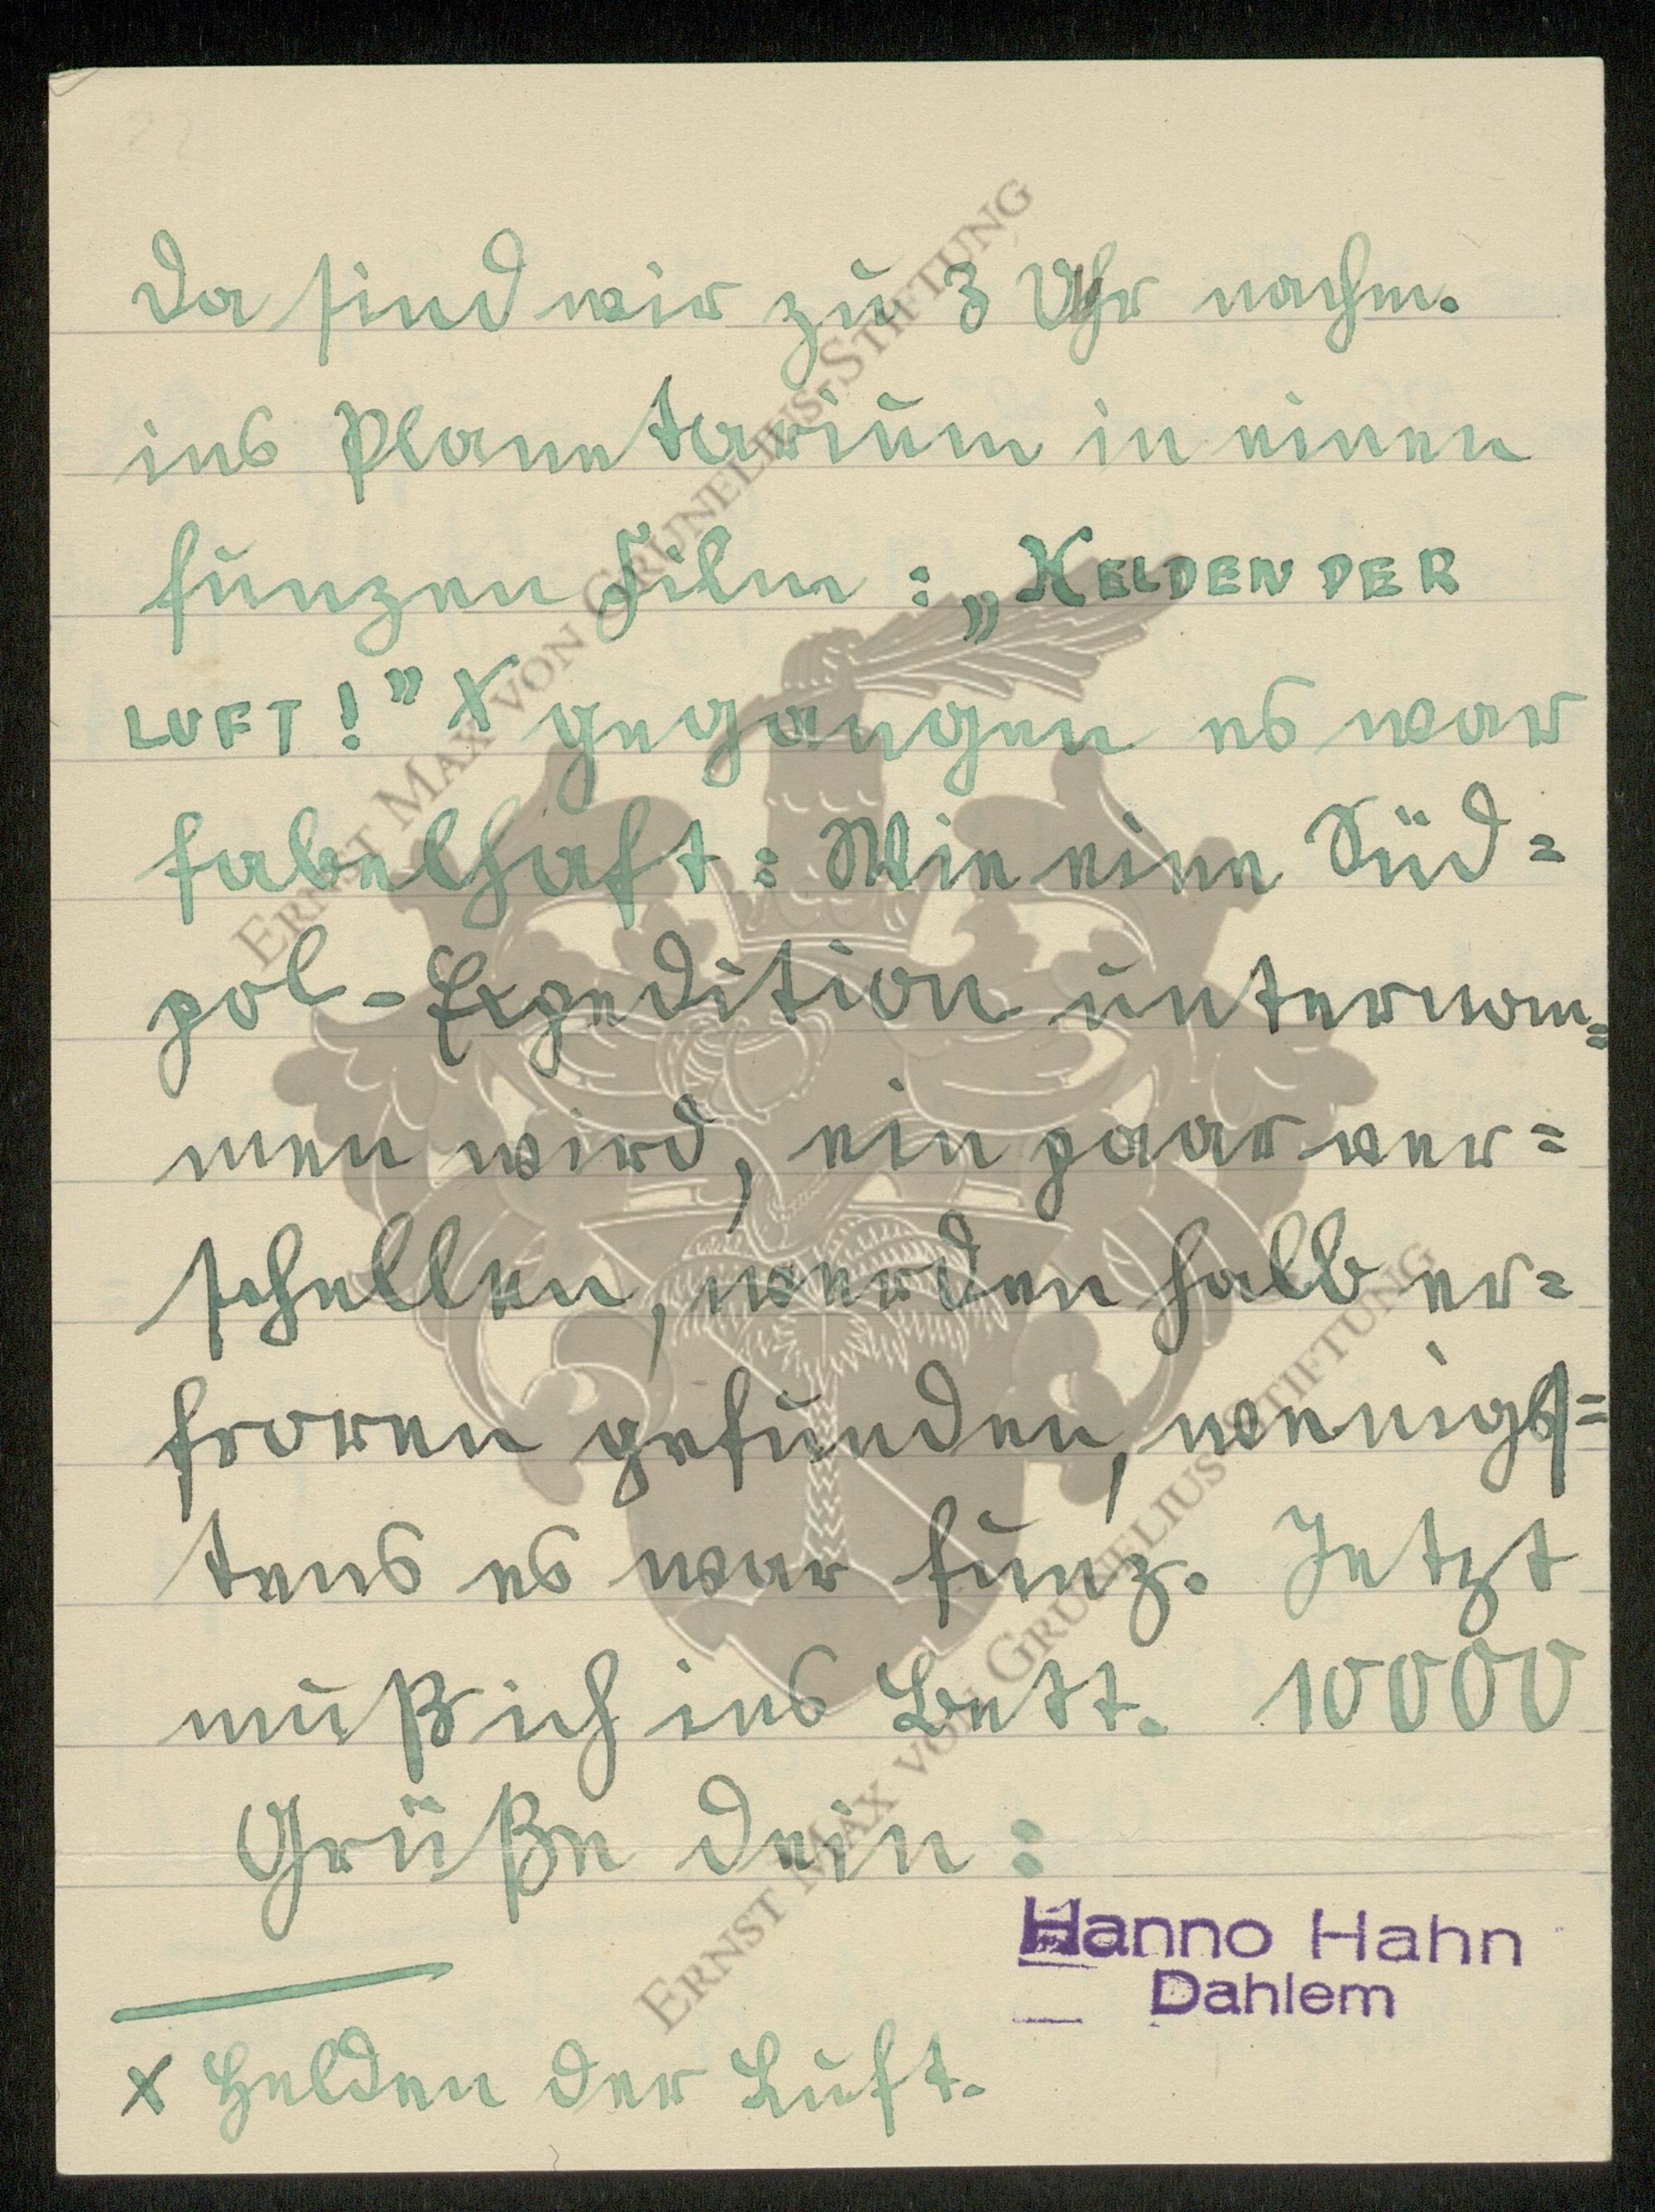 Da sind wir zu 3 Uhr nachm.
ins Planetarium in einen
funzen Film: „HELDEN DER
LUFT!" x gegangen es war
fabelhaft: Wie eine Süd=
pol-Expedition unternom=
men wird, ein paar ver=
schellen, werden halb er=
froren gefunden, wenigs=
tens es war funz. Jetzt
muß ich ins Bett. 10000
Grüße Dein:
Hanno Hahn
Dahlem
x Helden der Luft.
ERNST MAX VON GRUNELIUS-STIFTUNG
ERNST MAX VON GRUNELIUS-STIFTUNG